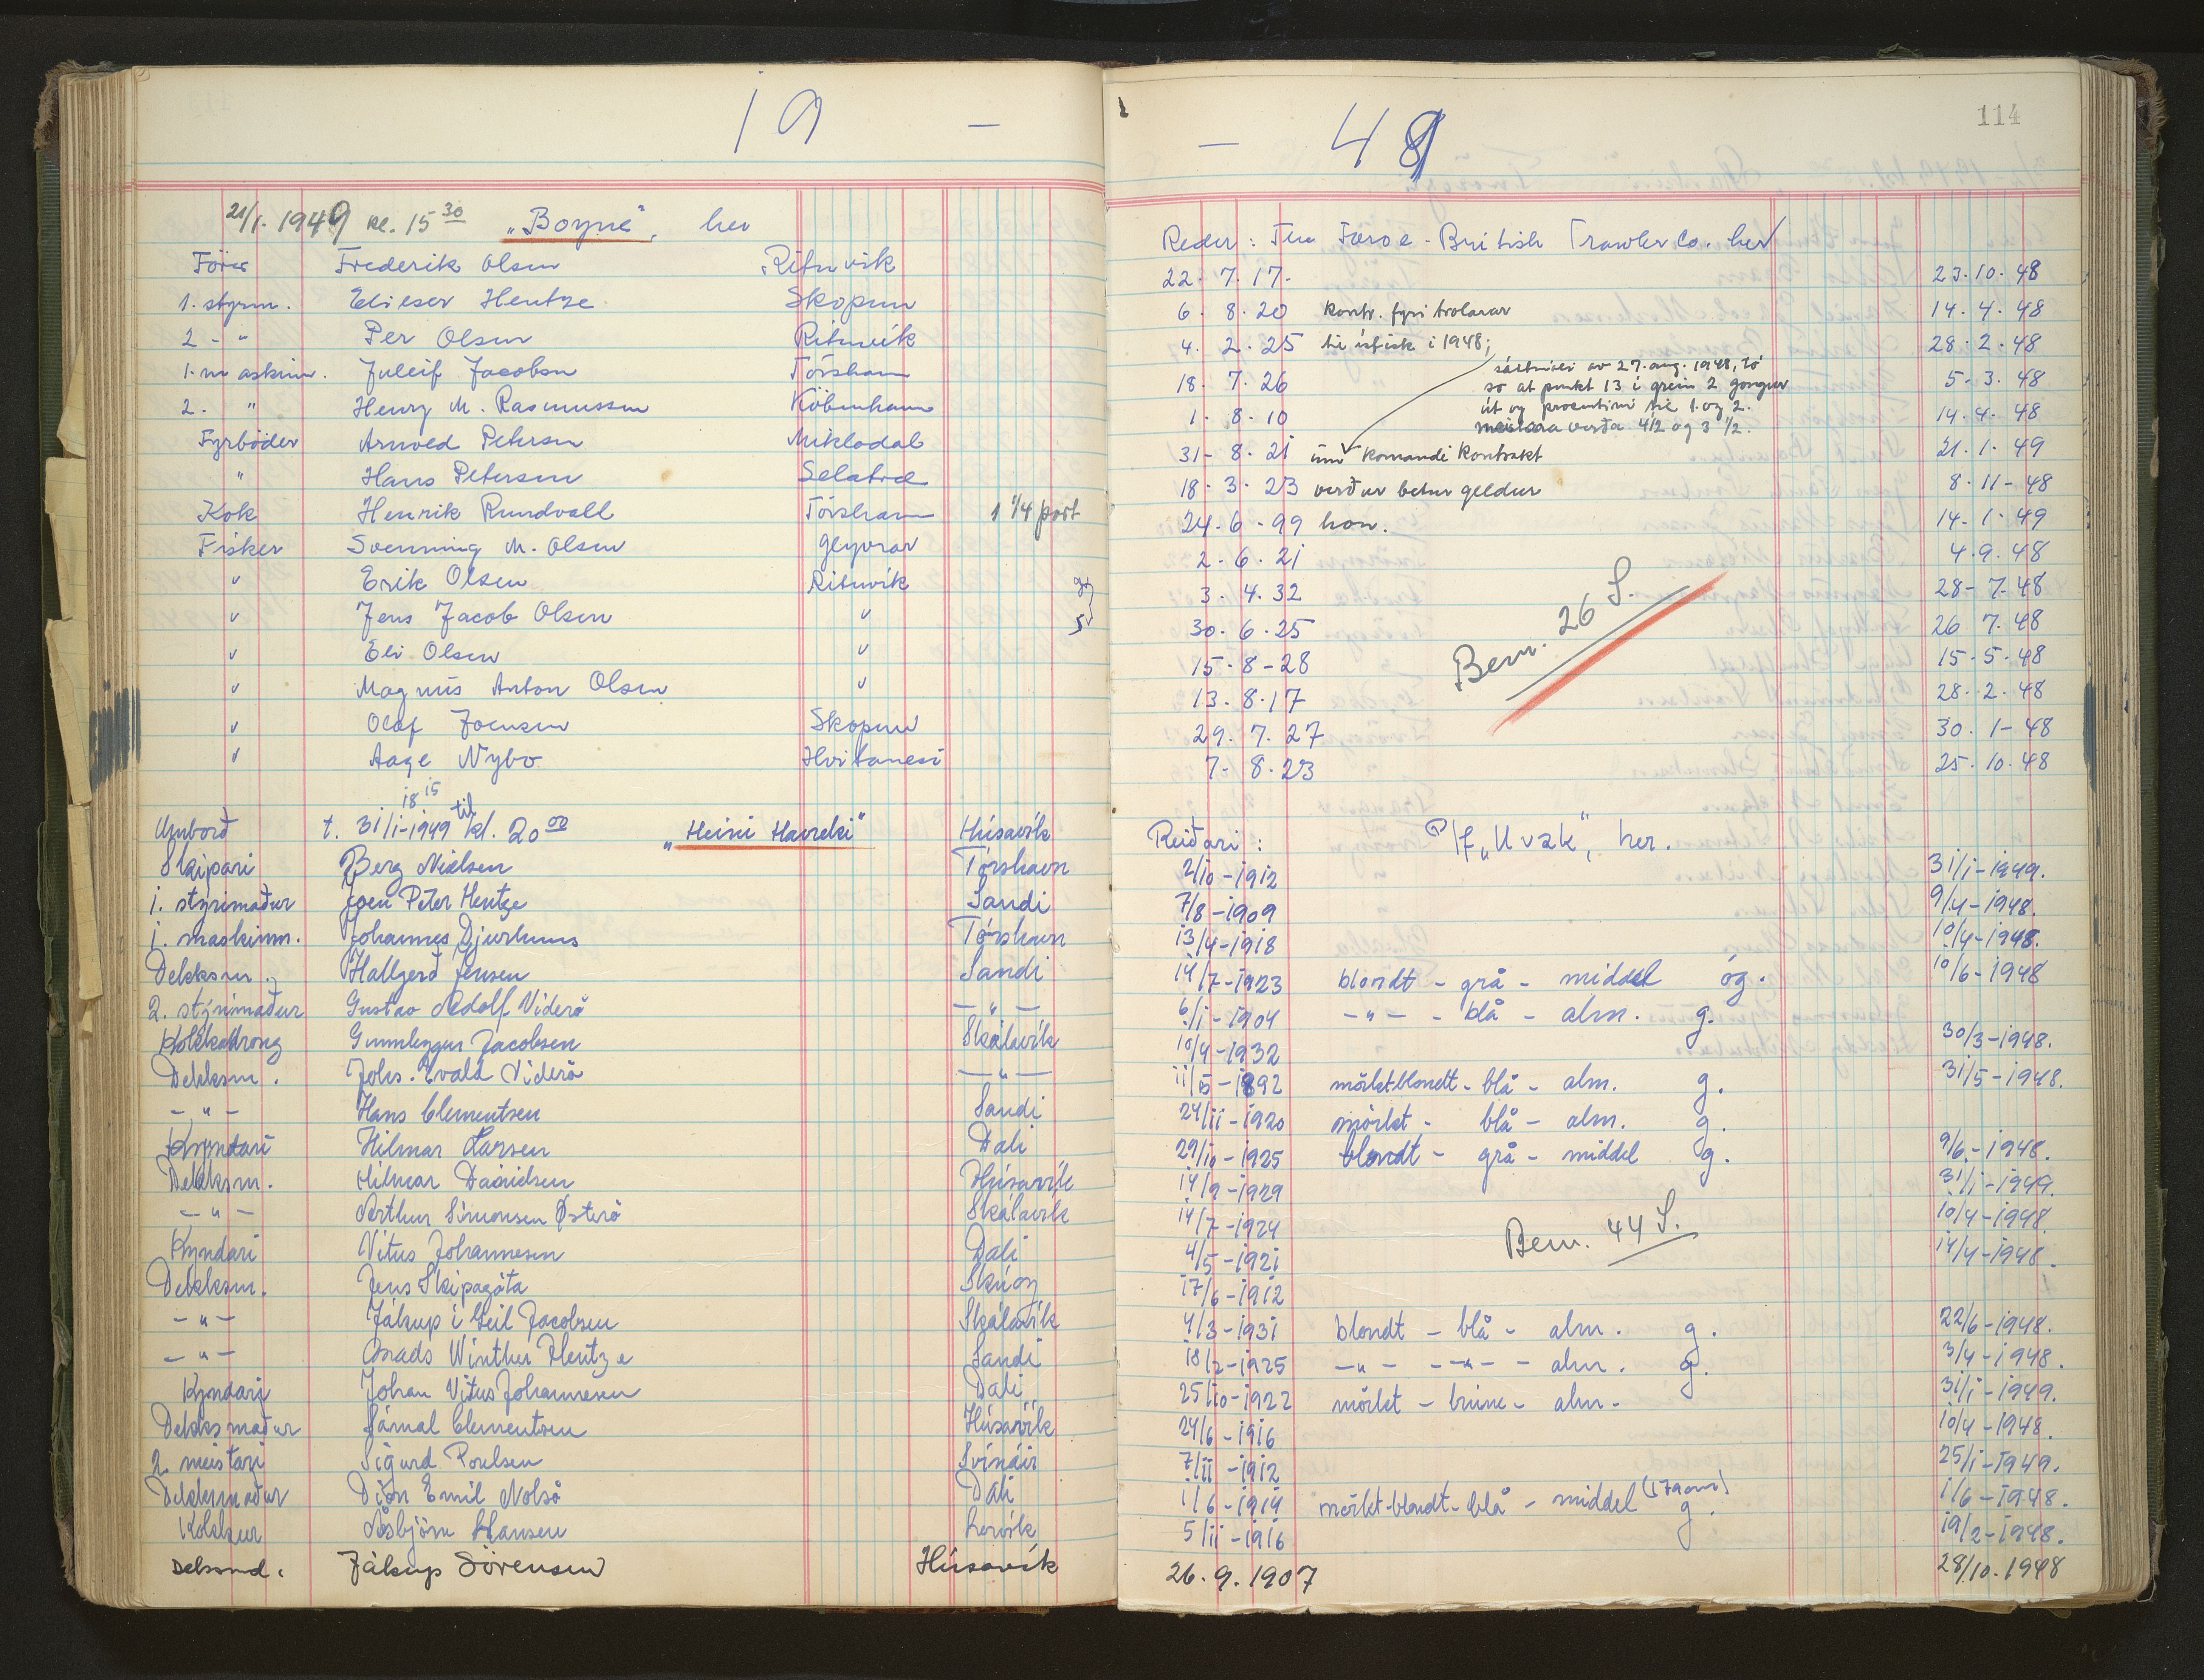 19 - - 48
114
21/1. 1949 kl. 15 30 „Boyne“, her Reder: The Faroe-British Trawler Co. her
Förer Frederik Olsen Rituvik 22. 7. 17. 23.10.48
1. styrm. Elieser Hentze Skopun 6. 8. 20 kontr. fyri trolarar 14.4.48
2 - " Per Olsen Rituvik 4. 2. 25 til ísfisk i 1948; 28.2.48
1. maskinm. Juleif Jacobsen Tórshavn 18. 7. 26 5-3.48
sáttmáli av 27. aug. 1948, tó
so at punkt 13 i grein 2 gongur
út og procentini til 1. og 2.
meistara verða 4 1/2 og 3 1/2.
2. " Henry M. Rasmussen Köbenhavn 1. 8. 10 14.4.48
Fyrböder Arnold Petersen Mikladal 31- 8. 21 komandi kontrakt 21.1.49
" Hans Petersen Selatrað 18. 3. 23 verður betur geldur 8.11-48
Kok Henrik Rundvall Tórshavn 1 1/4 part 24.6-99 hon. 14.1.49
Fisker Svenning M. Olsen Glyvrar 2-6.21 4.9.48
" Erik Olsen Rituvik 3. 4. 32 28-7.48
" Jens Jacob Olsen " 30.6.25 26 7.48
" Eli Olsen " 15.8-28 15.5.48
" Magnus Anton Olsen " 13.8.17 28.2.48
" Olaf Joensen Skopun 29.7.27 30.1-48
" Aage Nybo Hvitanesi 7.8.23 25.10.48
Bem. 26 S.
18 15
Umborð t. 31/1-1949 til kl. 20 00 „Heini Havreki“ Húsavík Reiðari: P/f „Kvæk“, her.
Skipari Berg Nielsen Tórshavn 2/10-1912 31/1-1949.
1. stýrimaður Joen Peter Hentze Sandi 7/8-1909 9/4-1948.
1. maskinm. Johannes Djurhuus Tórshavn 13/4-1918 10/4-1948.
Dekksm. Hallgerð Jensen Sandi 14/7-1923 blondt - grå - middel óg. 10/6-1948
2. stýrimaður Gustav Adolf Viderö - " - 6/1-1904 - " - - blå - alm. g.
Kokkadrong Gunnleygur Jacobsen Skálavík 10/4-1932 30/3-1948.
Dekksm. Johs. Evald Viderö - " - 11/5-1892 mörkt-blondt - blå - alm. g. 31/5-1948.
- " - Hans Clementsen Sandi 24/11-1920 mörkt - blå - alm. g.
Kyndari Hilmar Larsen Dali 29/10-1925 blondt - grå - middel g. 9/6-1948.
Dekksm. Hilmar Davidsen Húsavík 14/9-1929 31/1-1949.
- " - Arthur Simonsen Østerö Skálavík 14/7-1924 10/4-1948.
Bem. 44 S.
Kyndari Vitus Johannesen Dali 4/5-1921 14/4-1948.
Dekksm. Jens Skipagöta Skúoy 17/6-1912
- " - Jákup i Geil Jacobsen Skálavík 4/3-1931 blondt - blå - alm. g. 22/6-1948.
- " - Mads Winther Hentze Sandi 18/2-1925 - " - - " - - alm. g. 3/4-1948.
Kyndari Johan Vitus Johannesen Dali 25/10-1922 mörkt - brúne - alm - 31/1-1949.
Dekksmaður Sámal Clementsen Húsavík 24/6-1916 10/4-1948.
2. meistari Sigurd Poulsen Svínáir 7/11-1912 25/1-1949.
Dekksmaður Djón Emil Nolsö Dali 1/6-1914 mörkt-blondt - blå - middel (179 cm) g. 1/6-1948.
Kokkur Asbjörn Hansen Lervík 5/11-1916 19/2-1948.
Deksmd. Jákup Sörensen Húsavík 26.9.1907 28/10.1948